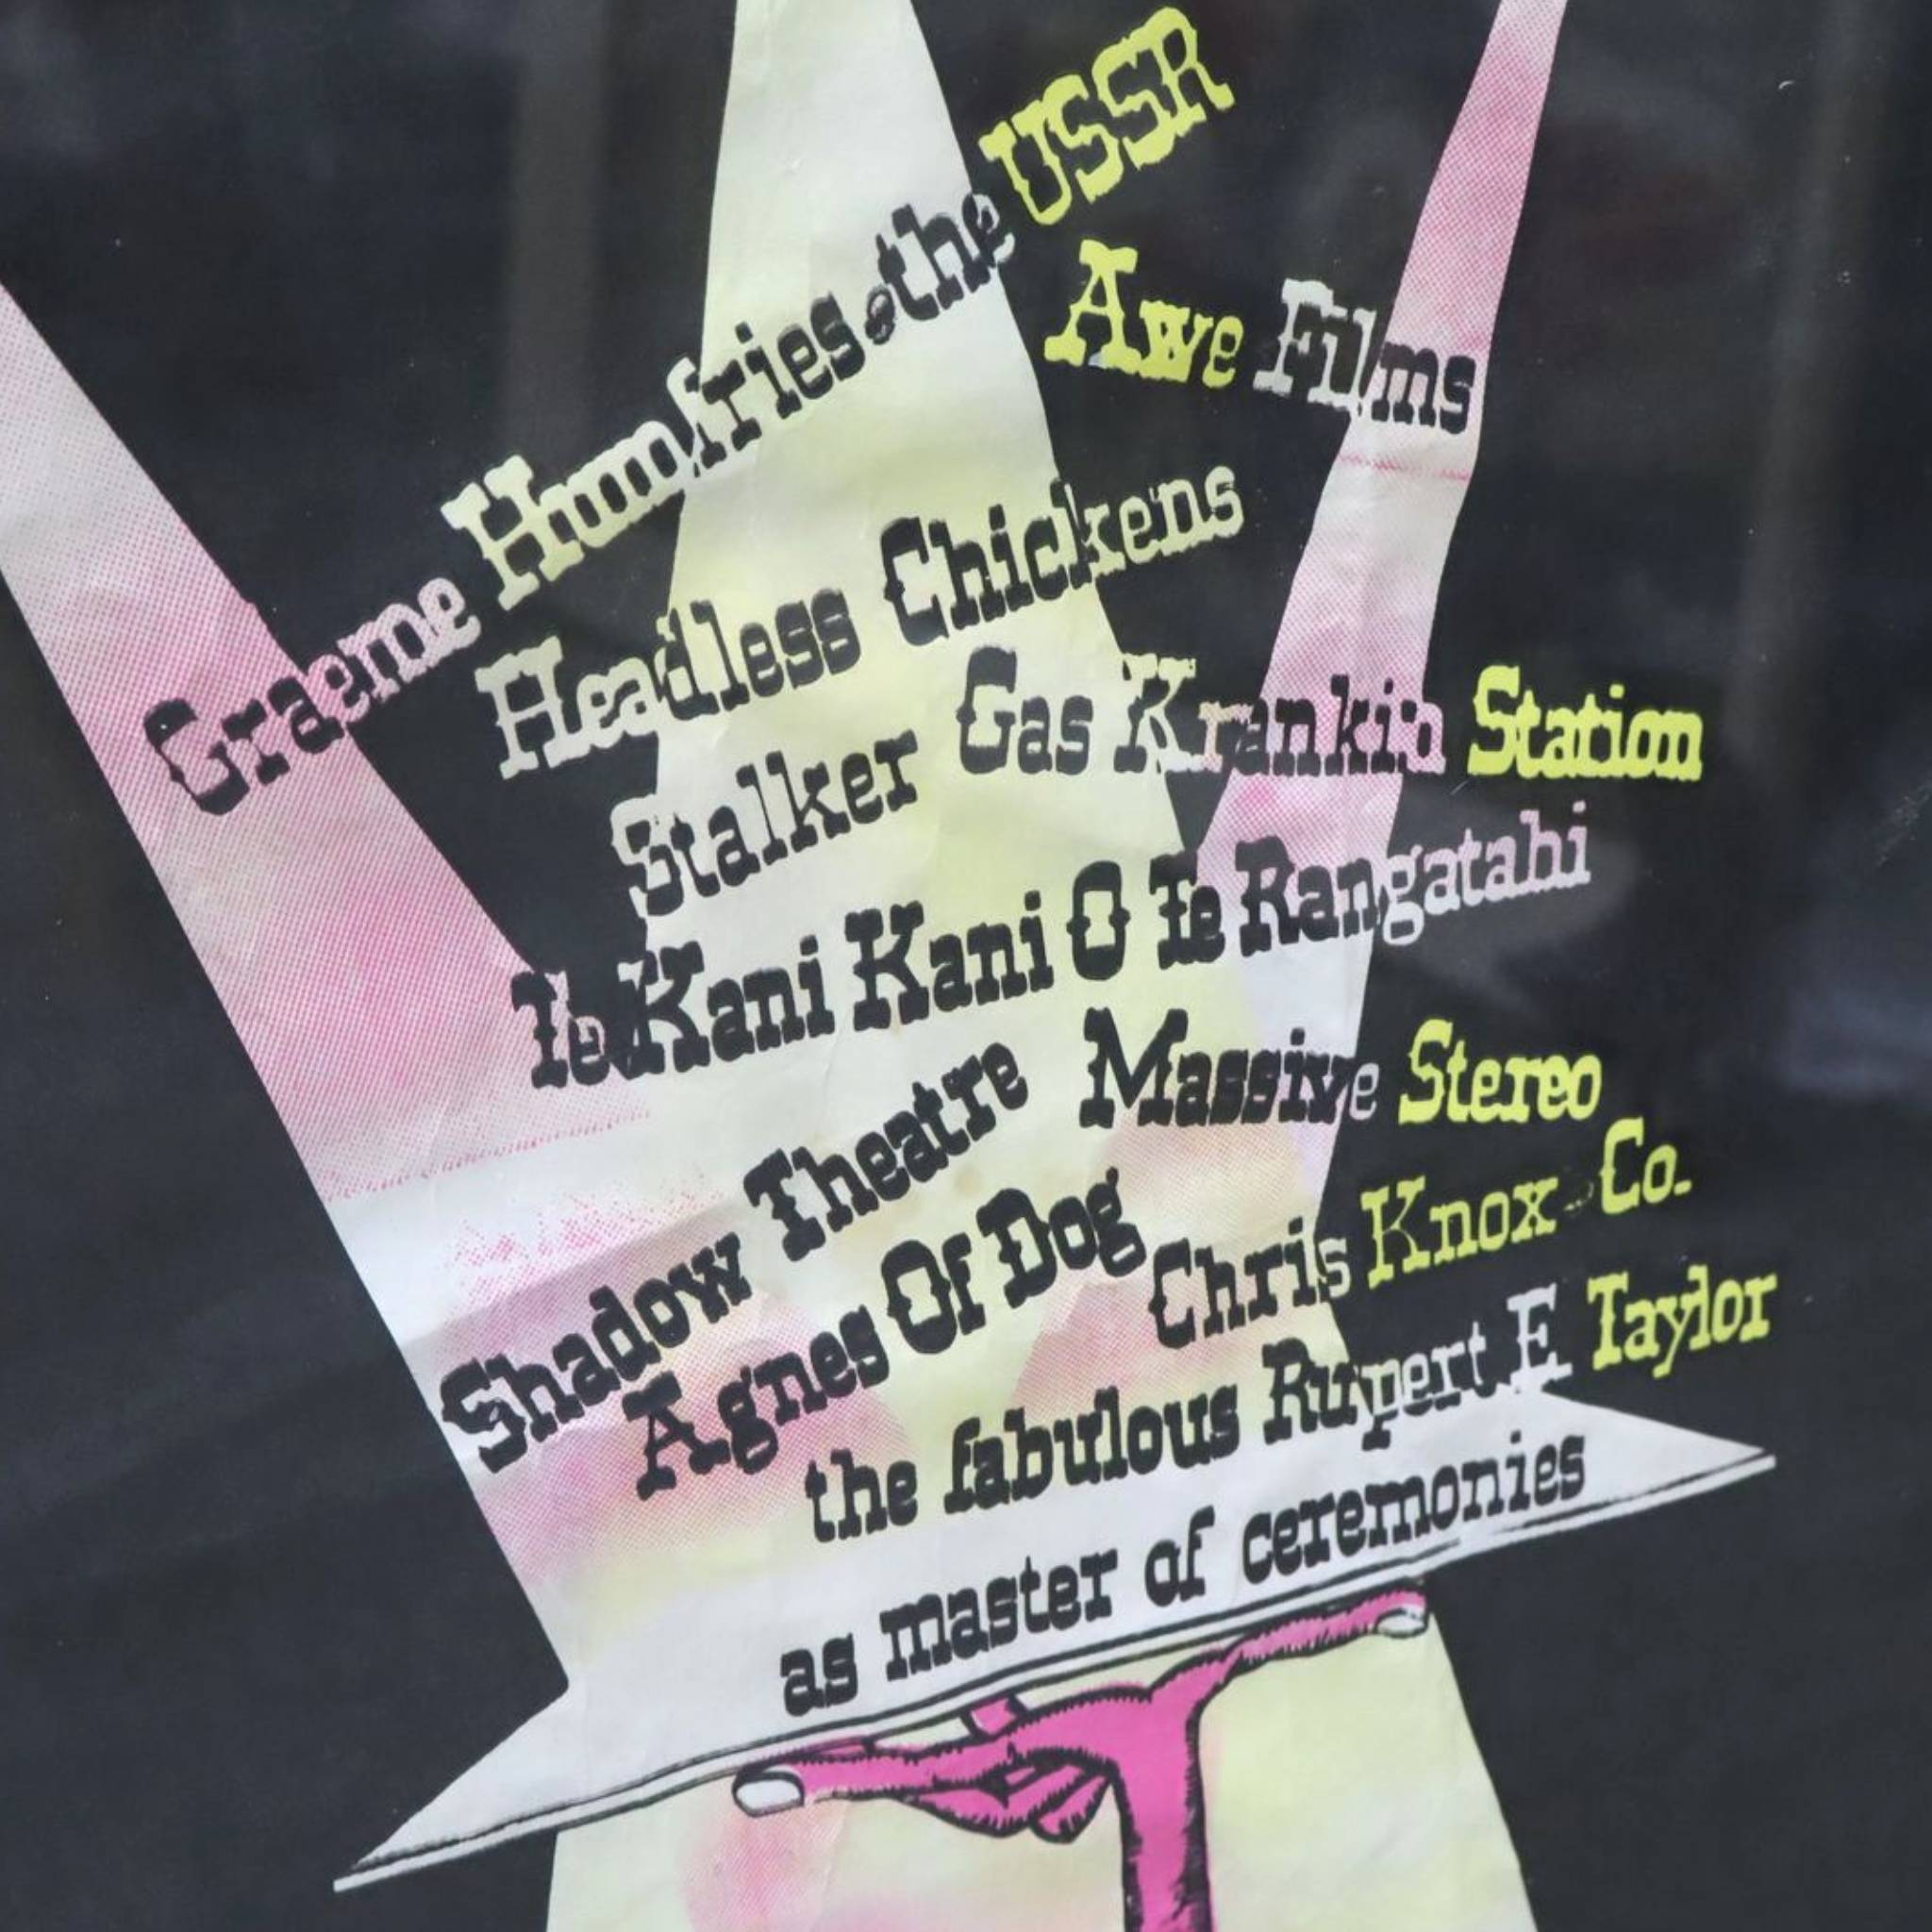 Graeme Humfries & the USSR
Awe Films
Headless Chickens
Stalker Gas Krankin Station
Te Kani Kani O Te Rangatahi
Shadow Theatre Massive Stereo
Agnes Of Dog Chris Knox & Co.
the fabulous Rupert E Taylor
as master of ceremonies